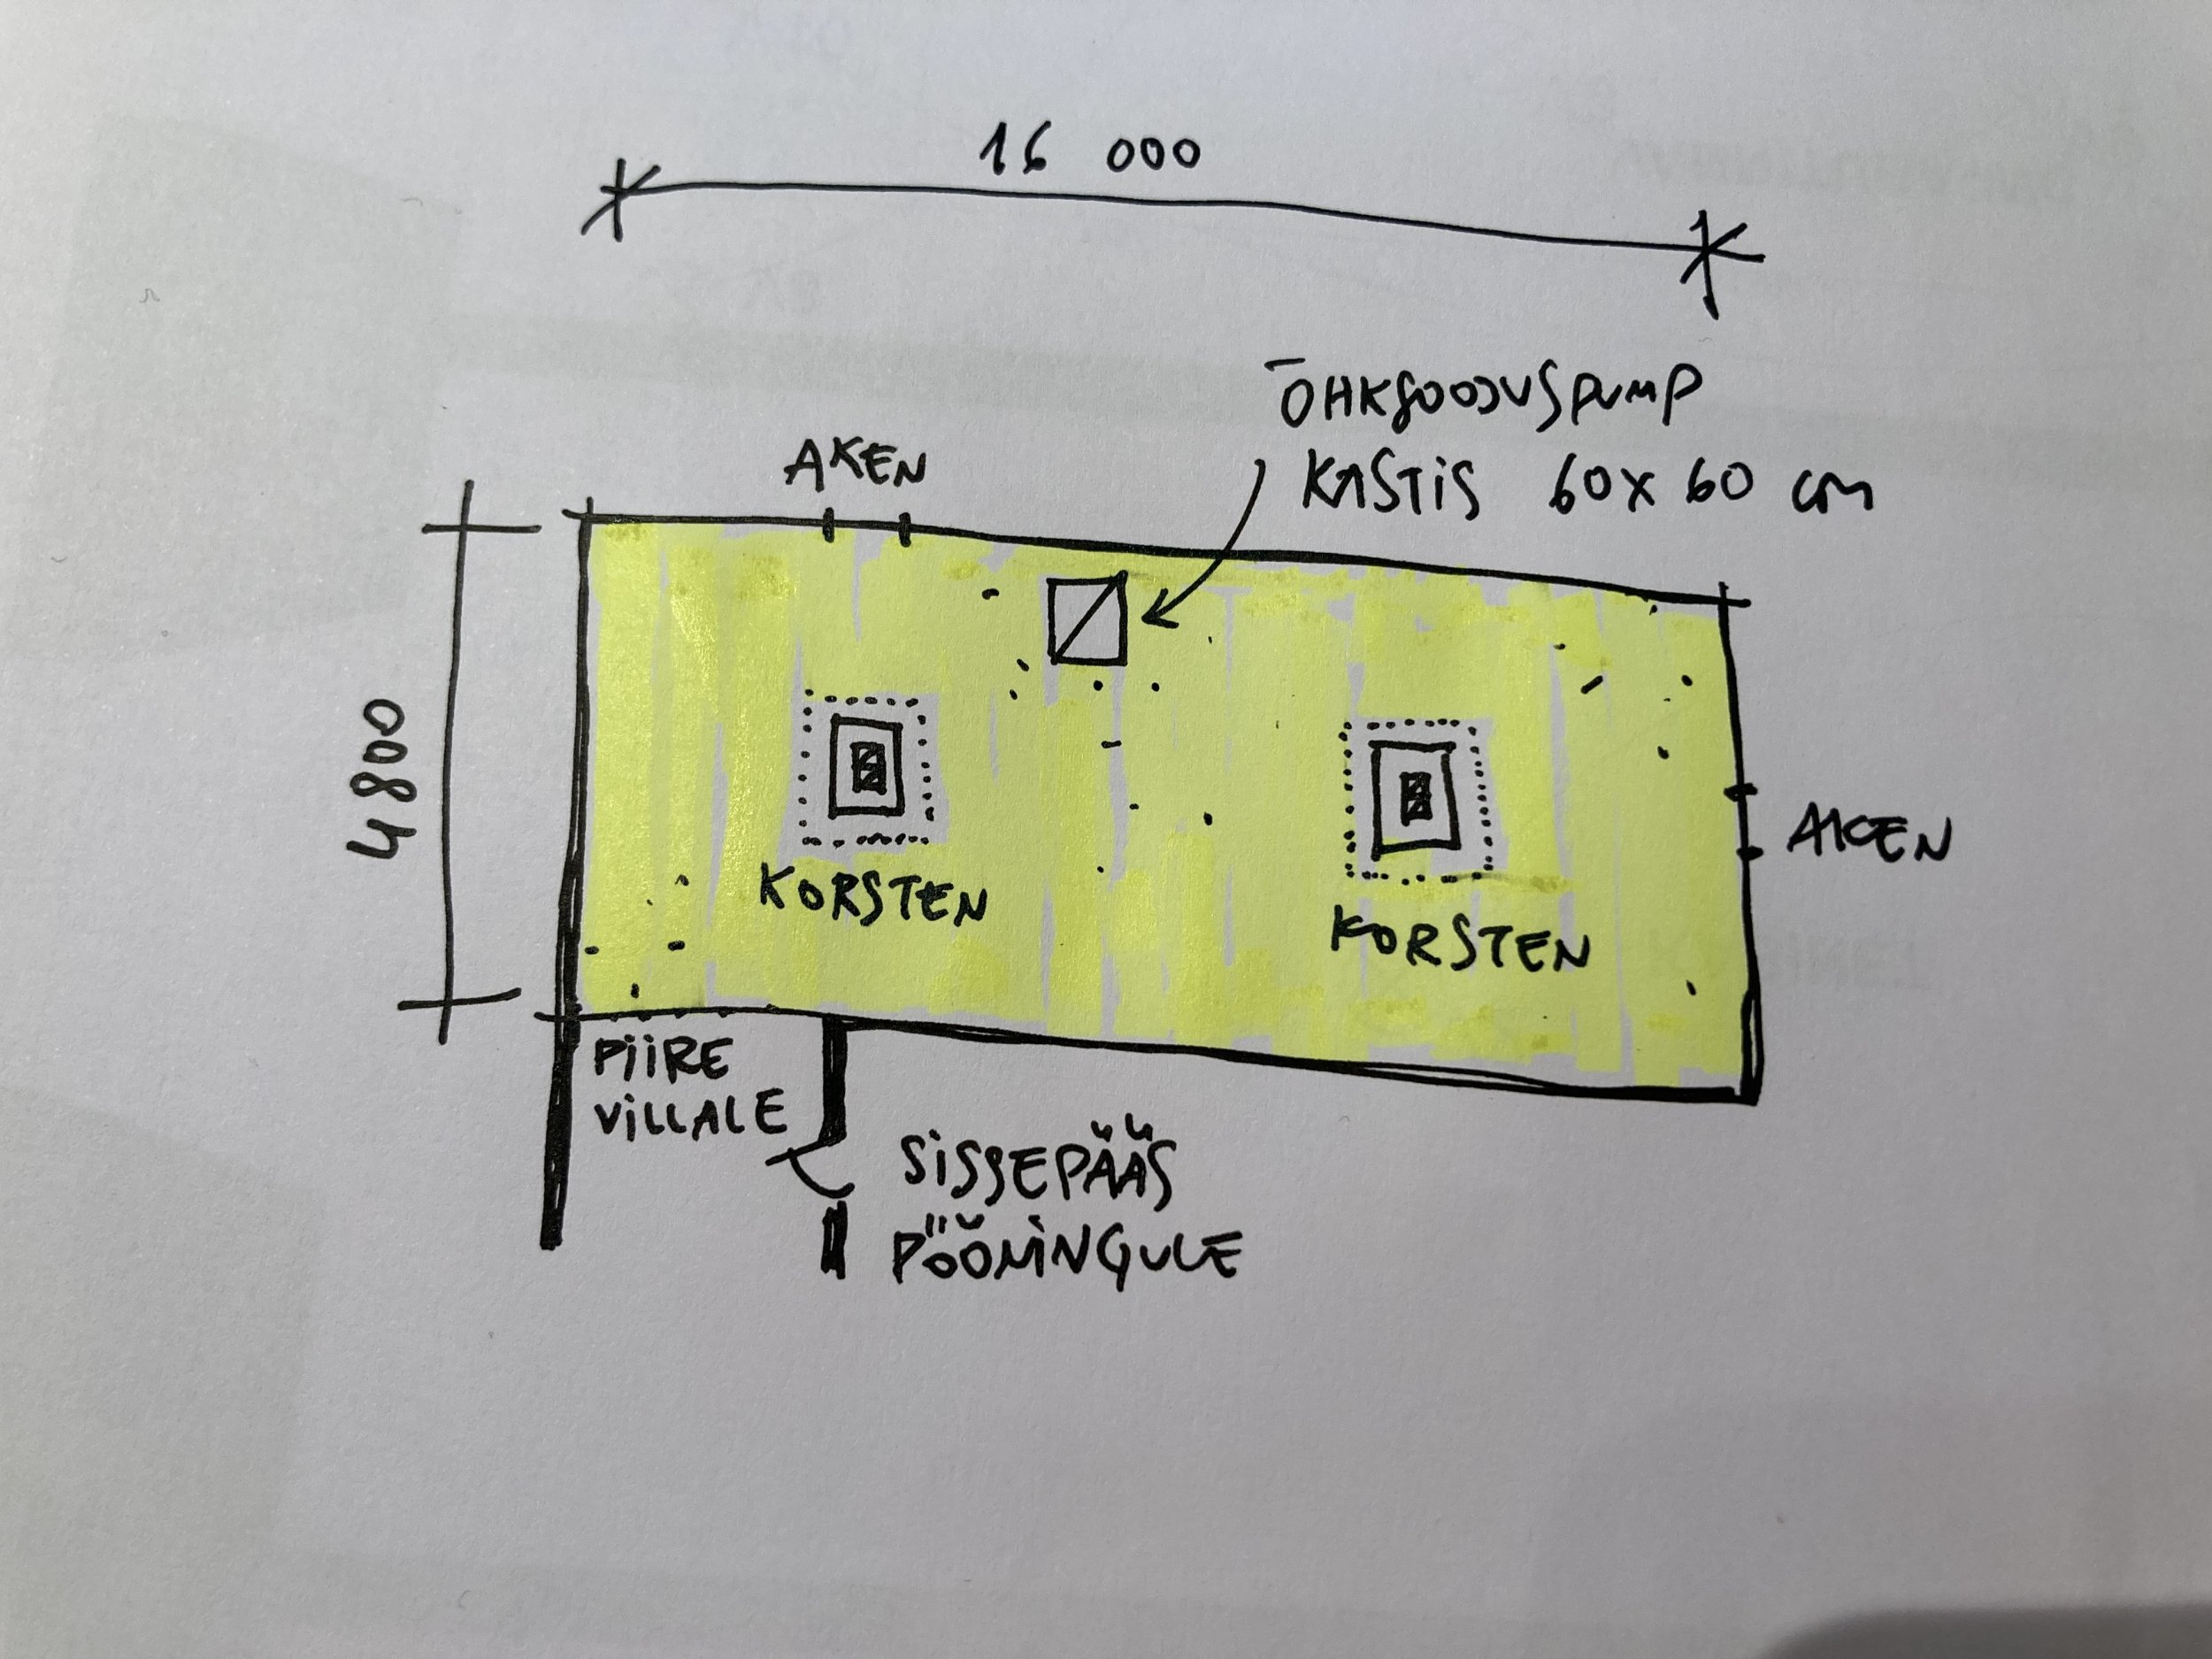 16 000
ÕHKSOOJUSPUMP
KASTIS 60x60 cm
AKEN
4800
AKEN
KORSTEN
KORSTEN
PIIRE
VILLALE
SISSEPÄÄS
PÖÖNINGULE